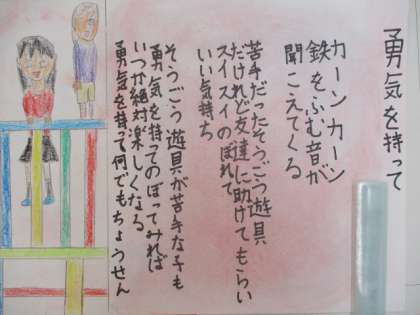 勇気を持って
カーンカーン
鉄をふむ音が
聞こえてくる
苦手だったそうごう遊具
だけれど友達に助けてもらい
スイスイのぼれて
いい気持ち
そうごう遊具が苦手な子も
勇気を持ってのぼってみれば
いつか絶対楽しくなる
勇気を持って何でもちょうせん